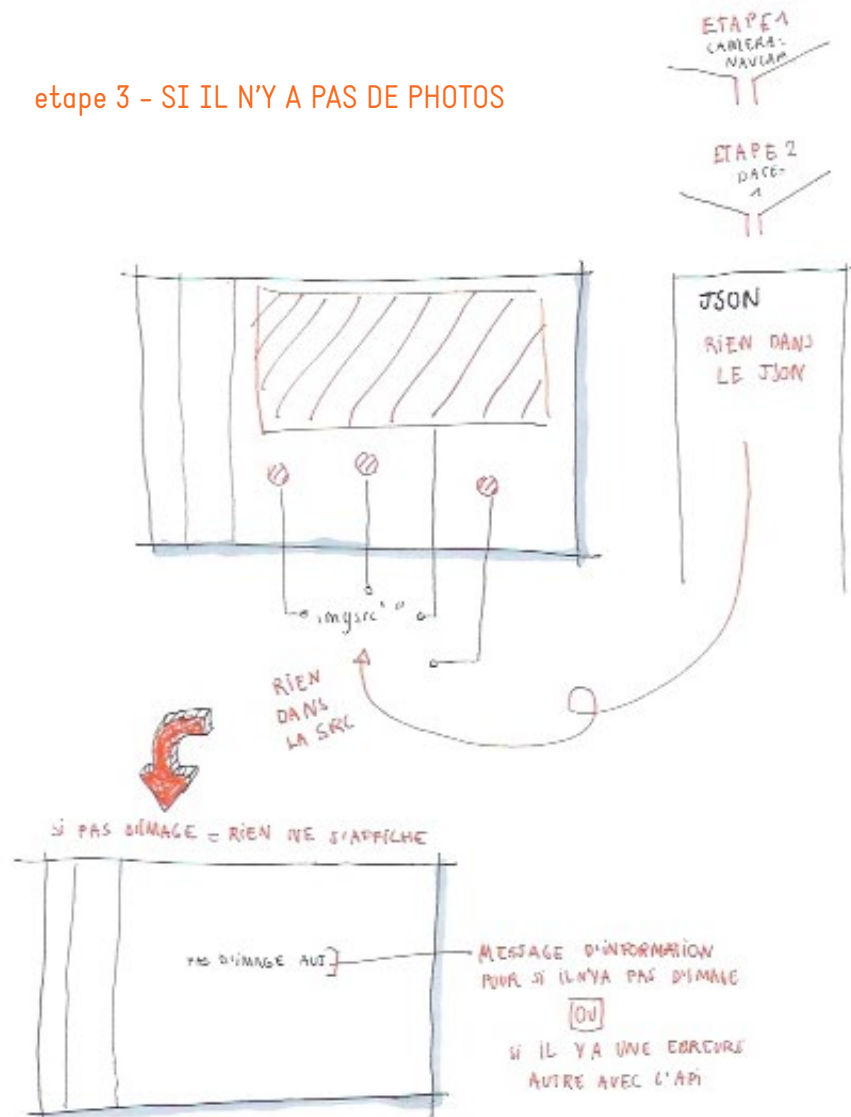 ETAPE 1
CAMERA:
NAVCAM
etape 3 - SI IL N'Y A PAS DE PHOTOS
ETAPE 2
DATE-
1
JSON
RIEN DANS
LE JSON
mysrc" "
RIEN
DANS
LA SRC
SI PAS D'IMAGE = RIEN NE S'AFFICHE
PAS D'IMAGE AUJ
MESSAGE D'INFORMATION
POUR SI IL N'YA PAS D'IMAGE
OU
SI IL Y A UNE ERREURE
AUTRE AVEC L'API